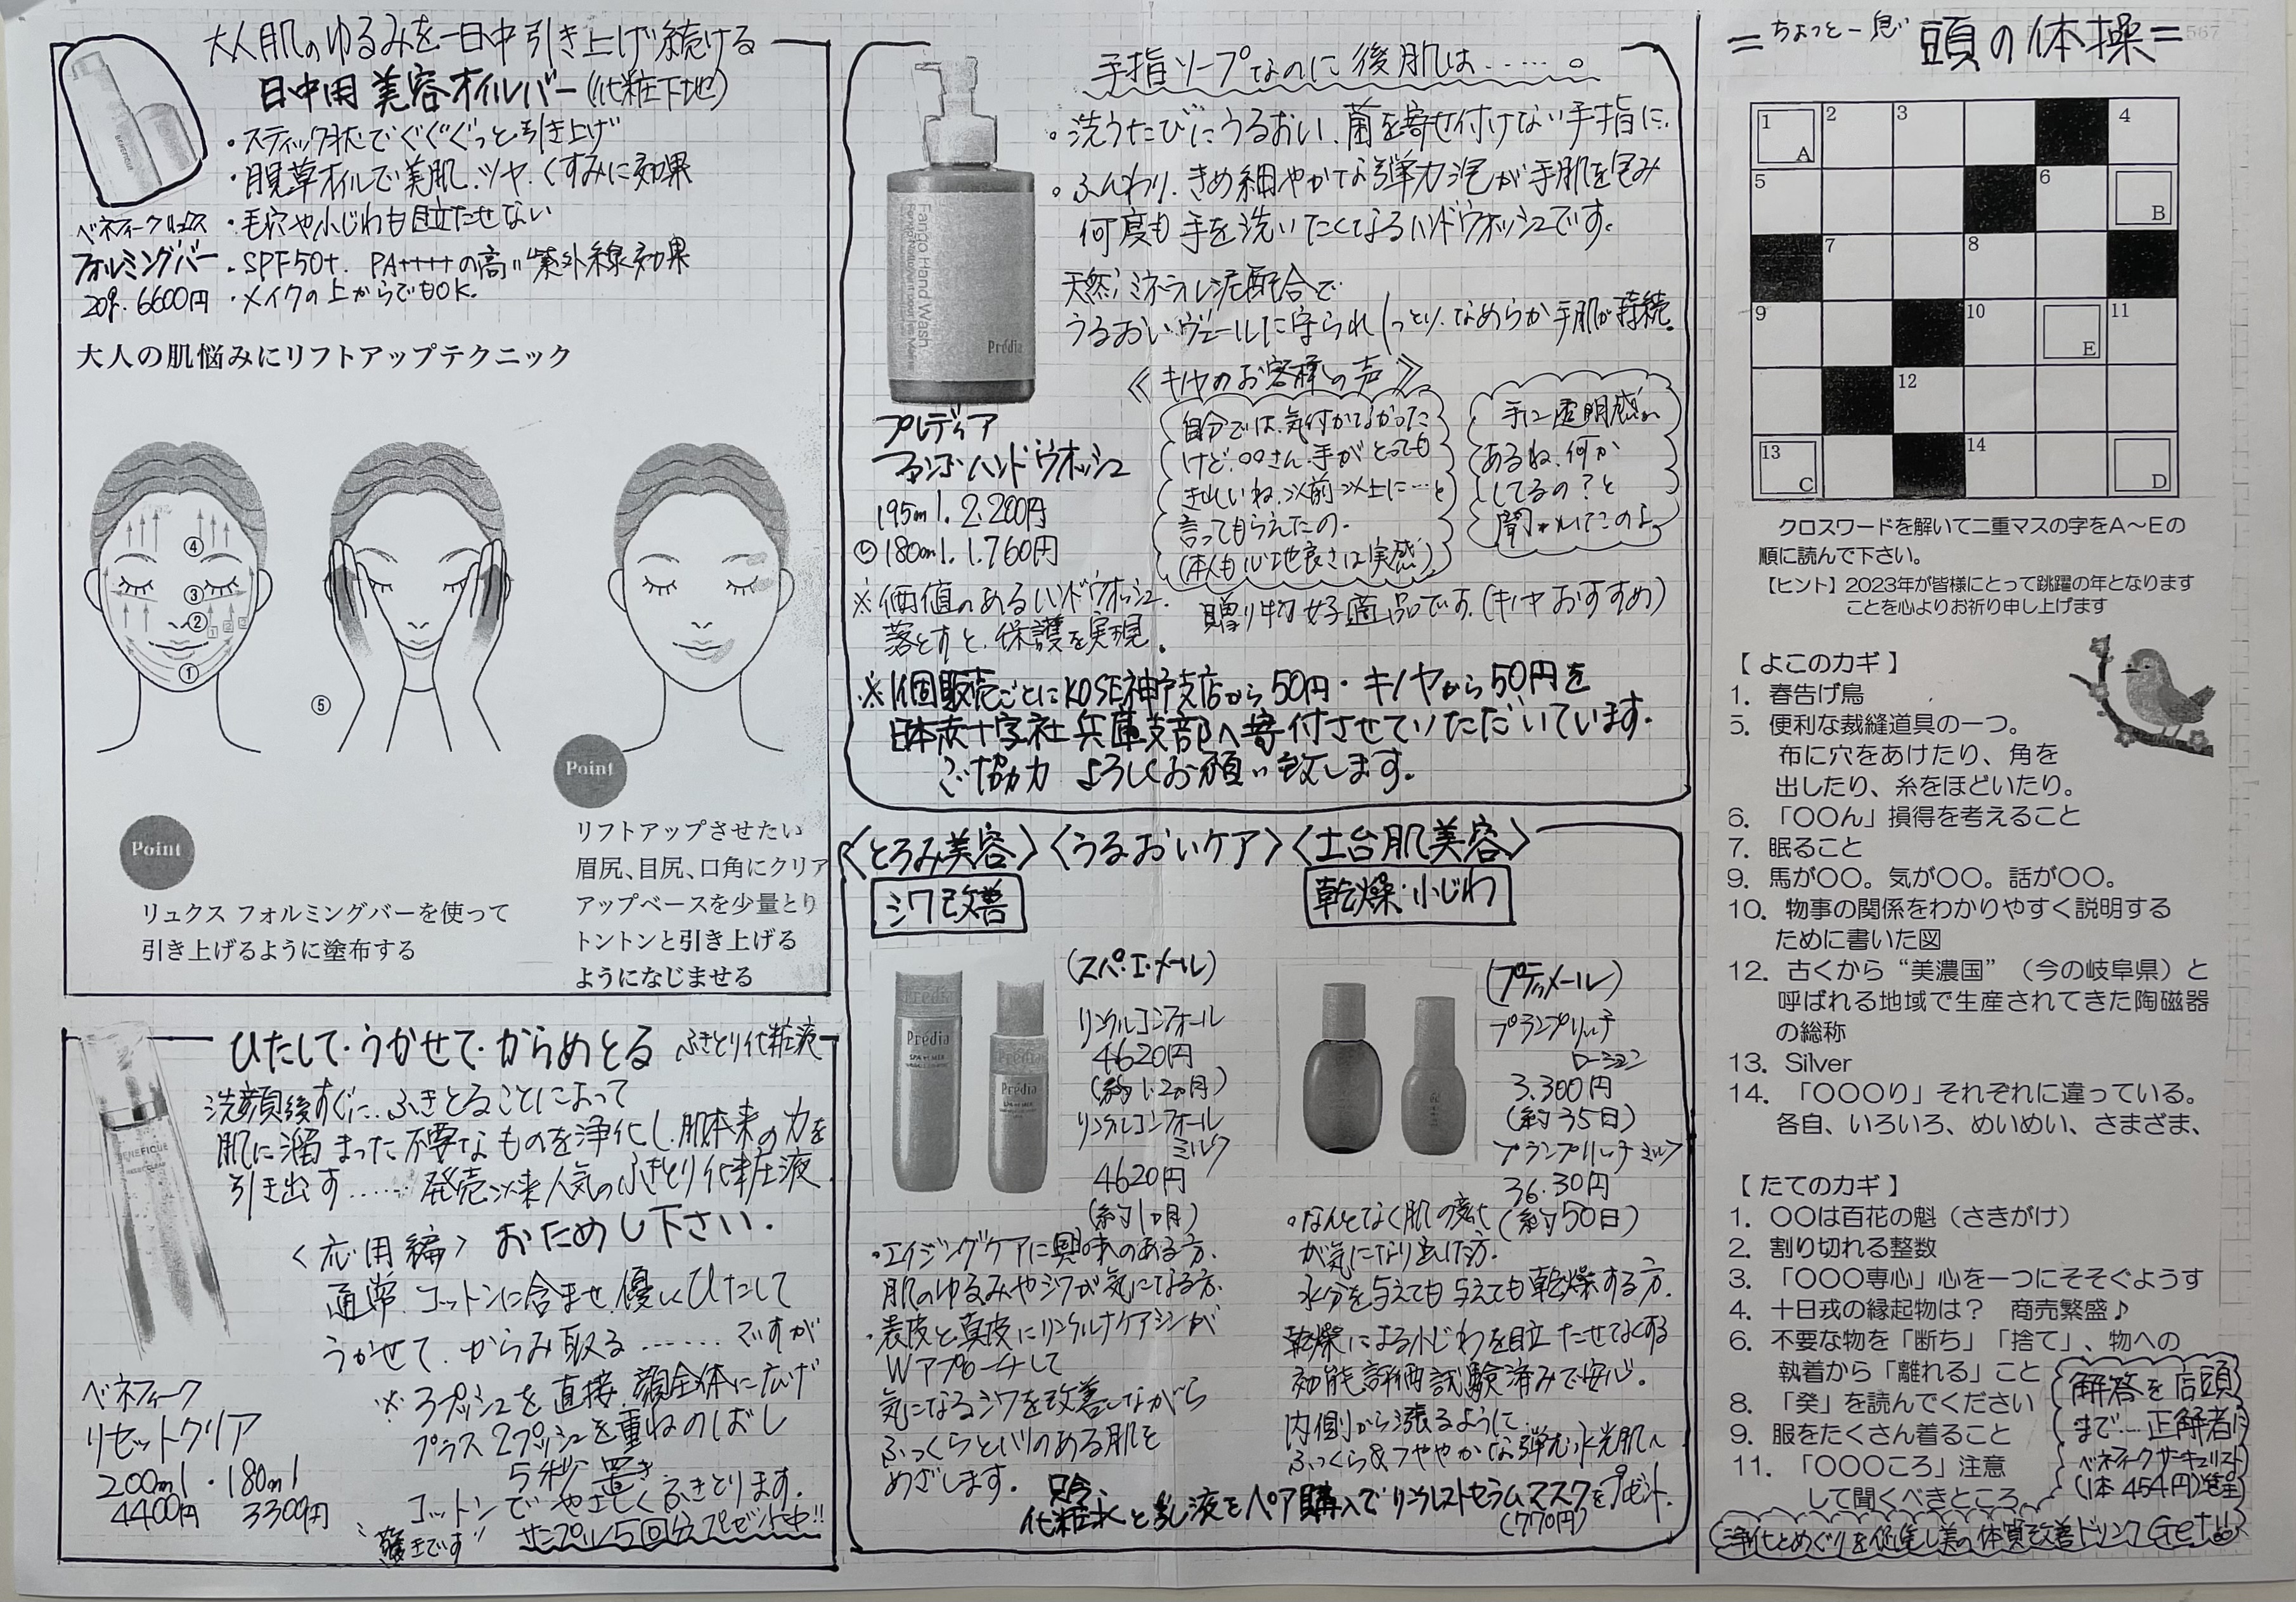 大人肌のゆるみを一日中引き上げ続ける
日中用 美容オイルバー(化粧下地)
・スティック状でぐぐぐっと引き上げ
・月見草オイルで美肌、ツヤ、くすみに効果
・毛穴や小じわも目立たせない
・SPF50+. PA++++の高い紫外線効果
・メイクの上からでもOK.
ベネフィークリュクス
フォルミングバー
20g. 6600円
大人の肌悩みにリフトアップテクニック
④
③
②
①
⑤
Point
リュクス フォルミングバーを使って
引き上げるように塗布する
Point
リフトアップさせたい
眉尻、目尻、口角にクリア
アップベースを少量とり
トントンと引き上げる
ようになじませる
ひたして・うかせて・からめとる ふきとり化粧液
洗顔後すぐに、ふきとることによって
肌に溜まった不要なものを浄化し、肌本来の力を
引き出す…… 発売以来人気のふきとり化粧液
〈応用編〉おためし下さい.
通常、コットンに含ませ、優しくひたして
うかせて、からみ取る……ですが
※3プッシュを直接、顔全体に広げ
プラス2プッシュを重ねのばし
5秒置き
コットンでやさしくふきとります.
"驚きです" サンプル5回分プレゼント中!!
BENEFIQUE
ベネフィーク
リセットクリア
200ml・180ml
4400円 3300円
手指ソープなのに後肌は……。
・洗うたびにうるおい、菌を寄せ付けない手指に.
・ふんわり、きめ細やかな弾力泡が手肌を包み
何度も手を洗いたくなるハンドウォッシュです。
天然ミネラル泥配合で
うるおいヴェールに守られしっとり、なめらか手肌が持続。
Fango Hand Wash
Prédia
プレディア
ファンゴ・ハンドウォッシュ
195ml. 2.200円
180ml. 1.760円
《キノヤのお客様の声》
自分では、気付かなかった
けど、○○さん、手がとっても
きれいね、以前以上に…と
言ってもらえたの.
(本人も心地良さは実感)
手に透明感が
あるね、何か
してるの？と
聞かれてこのよ
※価値のあるハンドウォッシュ.
落とすと、保護を実現.
贈り物好適品です.(キノヤおすすめ)
※1個販売ごとにKOSE神戸支店から50円・キノヤから50円を
日本赤十字社兵庫支部へ寄付させていただいています.
ご協力 よろしくお願い致します。
〈とろみ美容〉〈うるおいケア〉〈土台肌美容〉
シワ改善
乾燥・小じわ
Prédia
Prédia
(スパ・エ・メール)
リンクルコンフォール
4620円
(約1.2ヶ月)
リンクルコンフォール
ミルク
4620円
(約1ヶ月)
・エイジングケアに興味のある方.
肌のゆるみやシワが気になる方.
・表皮と真皮にリンクルナイアシンが
Wアプローチして
気になるシワを改善しながら
ふっくらとハリのある肌を
めざします.
(プティメール)
ブランプリッチ
ローション
3.300円
(約35日)
ブランプリッチミルク
36.30円
(約50日)
・なんとなく肌の衰え
が気になり出した方.
水分を与えても与えても乾燥する方.
乾燥による小じわを目立たせなくする
効能評価試験済みで安心.
内側から漲るように
ふっくら&つややかな弾む水光肌へ
只今、
化粧水と乳液をペア購入でリンクルストセラムマスクをプレゼント.
(770円)
=ちょっと一息 頭の体操=
1 A 2 3 4
5 6 B
7 8
9 10 E 11
12
13 C 14 D
クロスワードを解いて二重マスの字をA～Eの
順に読んで下さい。
【ヒント】2023年が皆様にとって跳躍の年となります
ことを心よりお祈り申し上げます
【 よこのカギ 】
1. 春告げ鳥
5. 便利な裁縫道具の一つ。
布に穴をあけたり、角を
出したり、糸をほどいたり。
6. 「〇〇ん」損得を考えること
7. 眠ること
9. 馬が〇〇。気が〇〇。話が〇〇。
10. 物事の関係をわかりやすく説明する
ために書いた図
12. 古くから“美濃国”（今の岐阜県）と
呼ばれる地域で生産されてきた陶磁器
の総称
13. Silver
14. 「〇〇〇り」それぞれに違っている。
各自、いろいろ、めいめい、さまざま、
【 たてのカギ 】
1. 〇〇は百花の魁（さきがけ）
2. 割り切れる整数
3. 「〇〇〇専心」心を一つにそそぐようす
4. 十日戎の縁起物は？ 商売繁盛♪
6. 不要な物を「断ち」「捨て」、物への
執着から「離れる」こと
8. 「癸」を読んでください
9. 服をたくさん着ること
11. 「〇〇〇ころ」注意
して聞くべきところ
解答を店頭
まで… 正解者に
ベネフィークサーキュリスト
(1本 454円)進呈
浄化とめぐりを促進し美の体質改善ドリンクGet!!